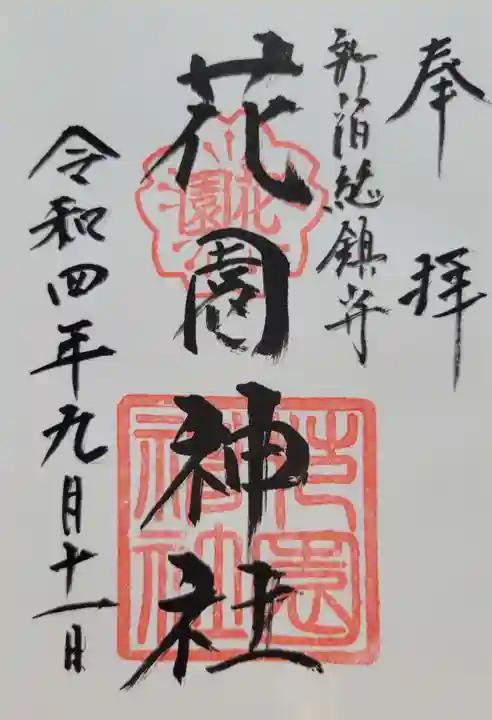 奉拝
新宿総鎮守
花園神社
令和四年九月十一日
花園
花園神社